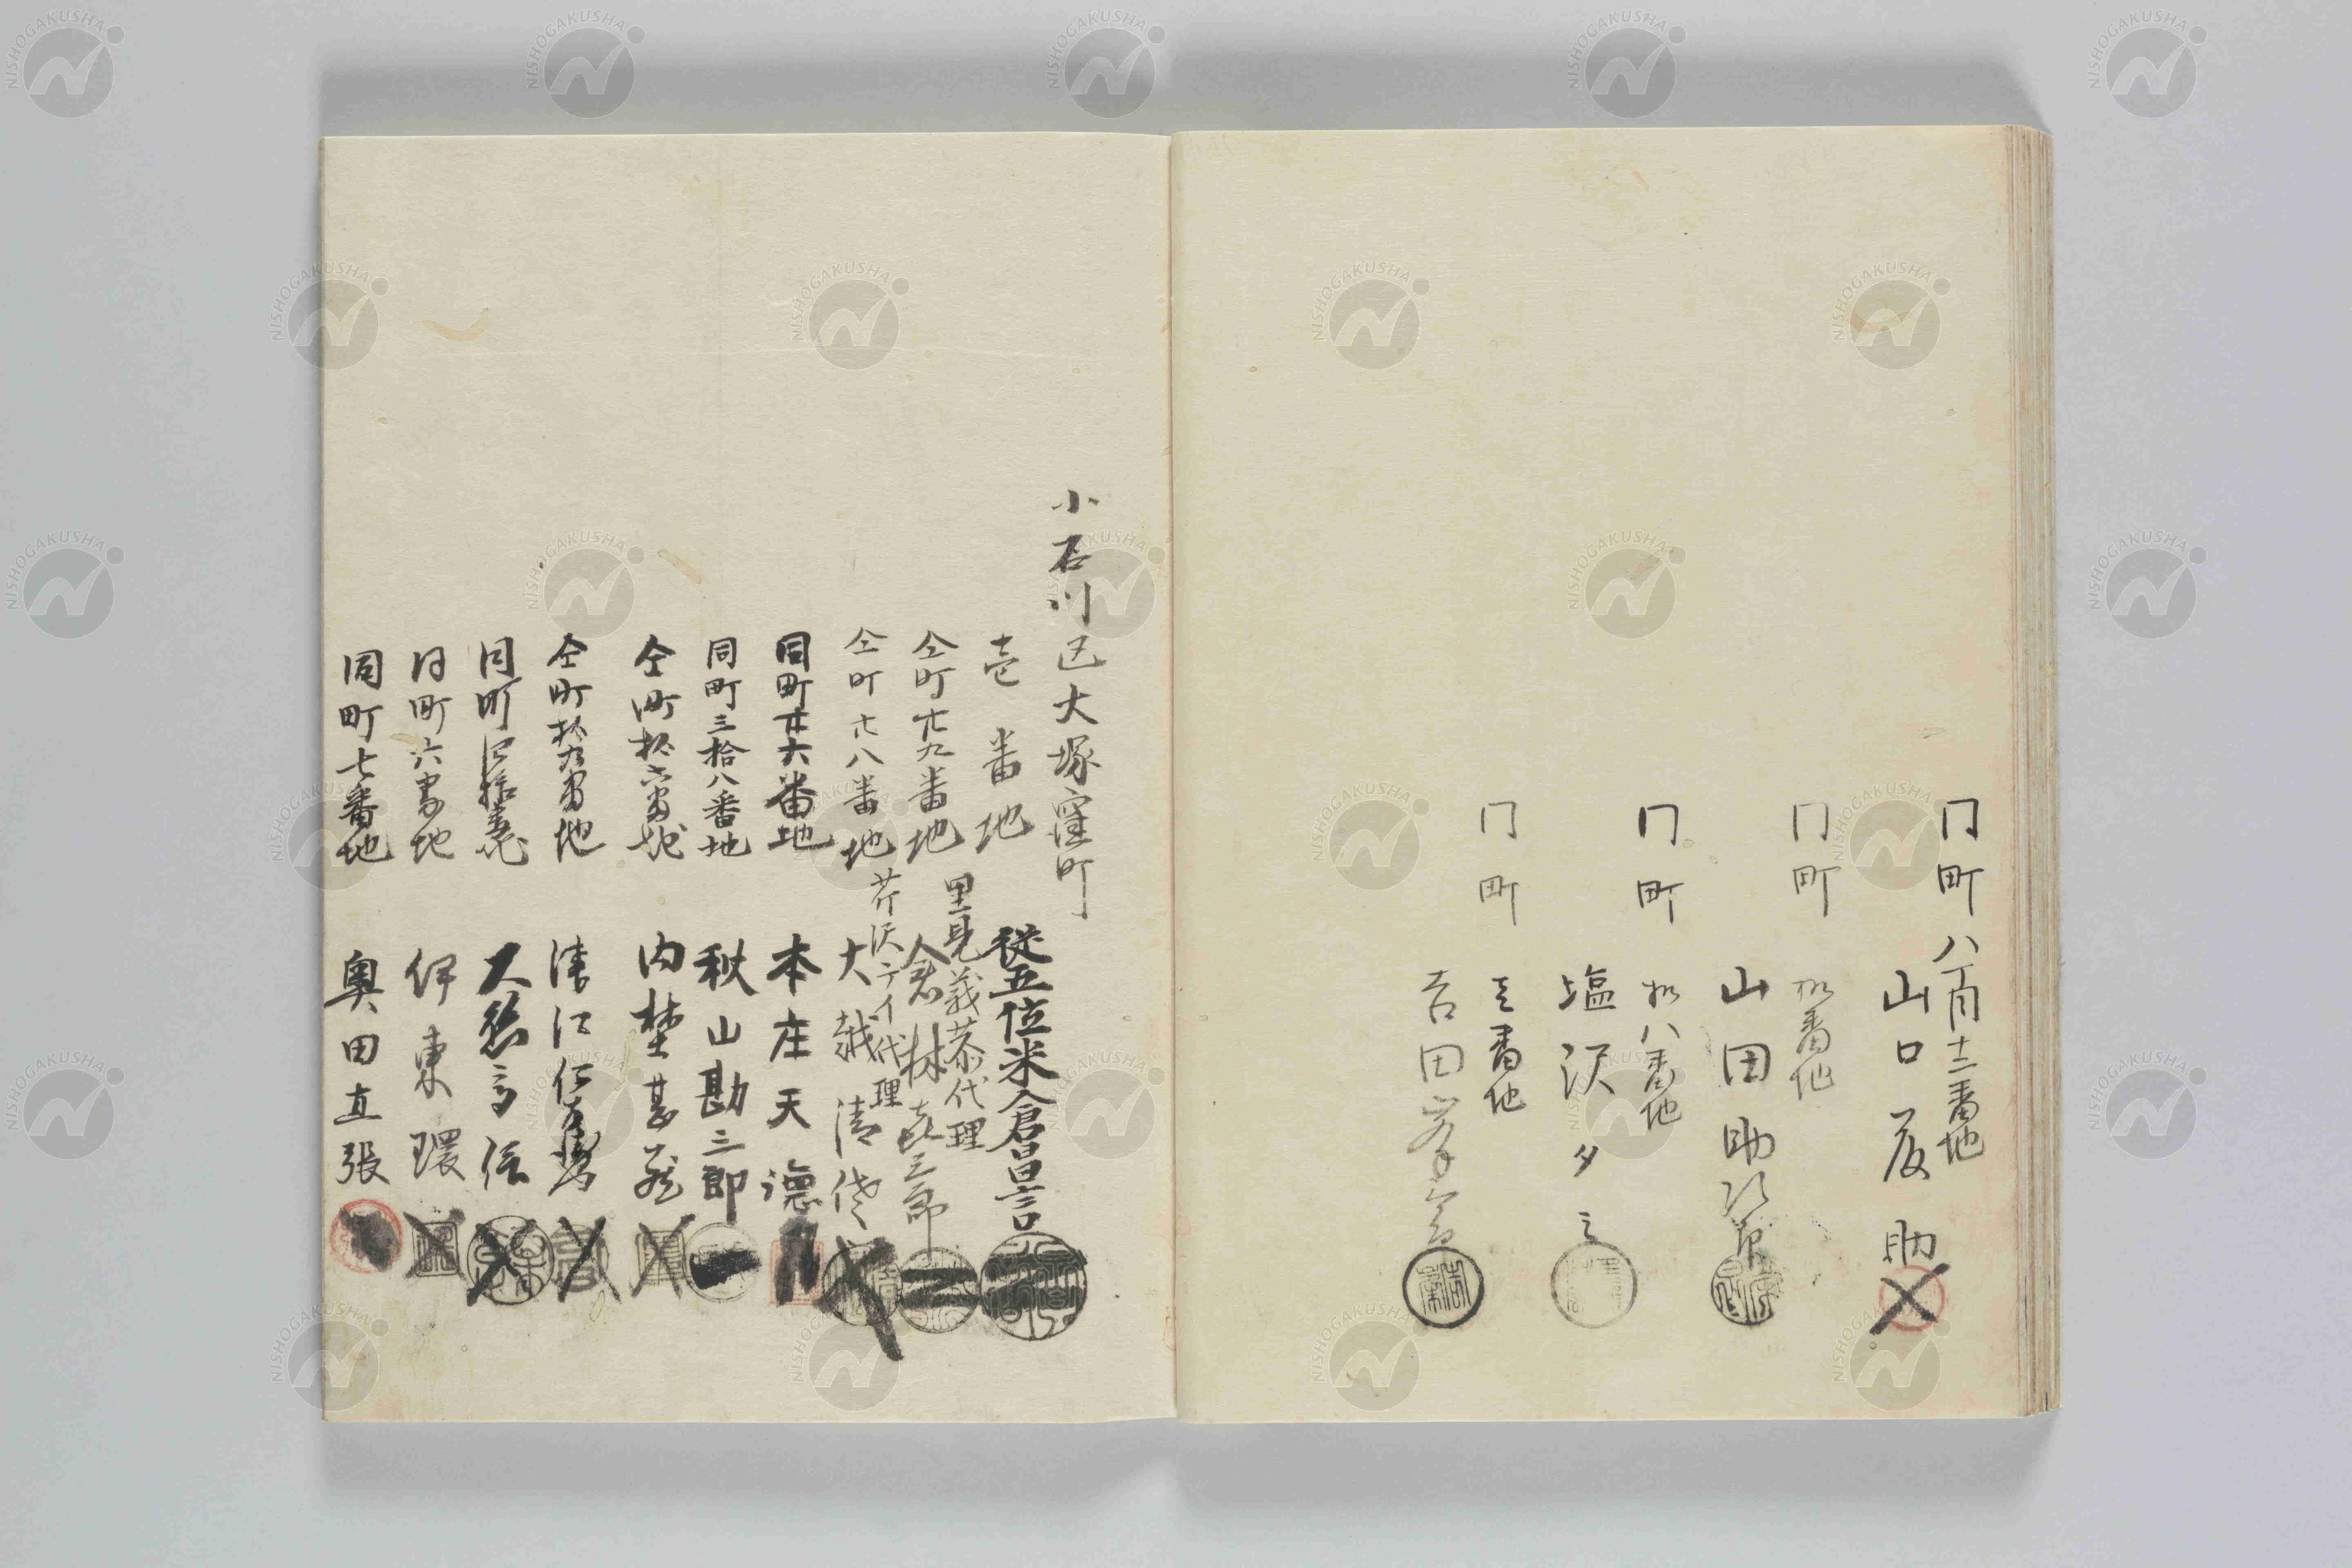 同町八丁目十二番地
山口広助
同町拾番地
山田助次郎
同町拾八番地
塩沢夕ミ
同町三番地
吉田
小石川区大塚窪町
壱番地
従五位米倉昌言
里見義恭代理
仝町廿九番地
倉林
芹沢テイ代理
仝町廿八番地
大越清
同町廿六番地
本庄天徳
同町三拾八番地
秋山勘三郎
仝町拾六番地
内埜甚蔵
仝町拾九番地
同町四拾壱番地
同町六番地
伊東環
同町七番地
奥田直張
NISHOGAKUSHA